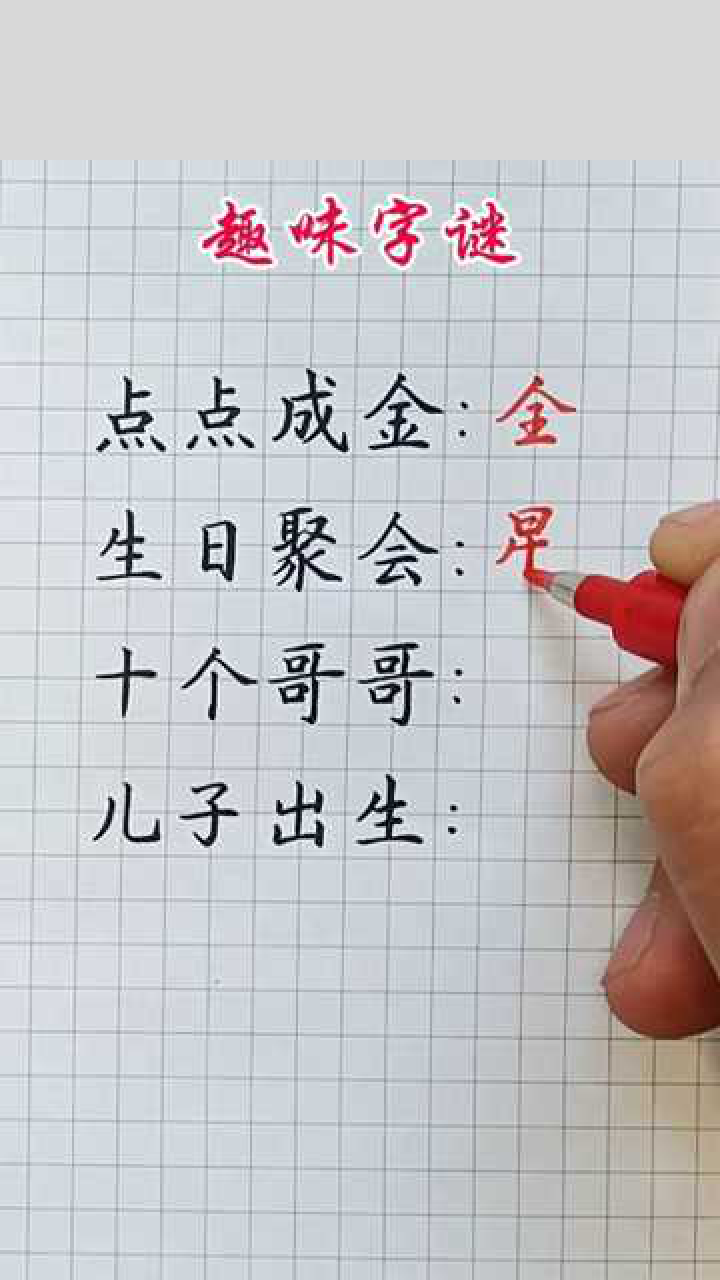 趣味字谜
点点成金:全
生日聚会:
十个哥哥:
儿子出生: